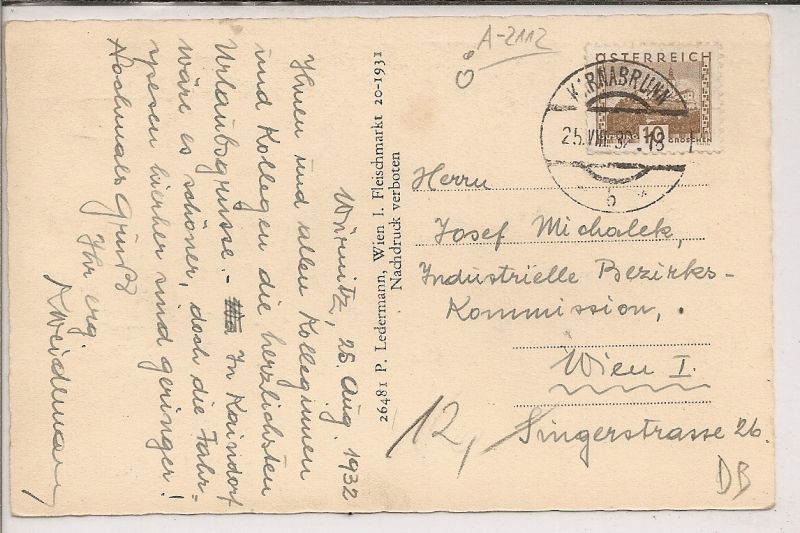 Wirnitz, 25. Aug. 1932
Ihnen und allen Kolleginnen
und Kollegen die herzlichsten
Urlaubsgrüsse. - In Kaindorf
wäre es schöner, doch die Fahr-
spesen hierher sind geringer!
Nochmals Gruß
Ihr erg.
26481 P. Ledermann, Wien I. Fleischmarkt 20-1931
Nachdruck verboten
A-2112
ÖSTERREICH
10
GROSCHEN
KARNABRUNN
25.VIII.32
Herrn
Josef Michalek,
Industrielle Bezirks-
Kommission,
Wien I.
Singerstrasse 26.
12,
DB